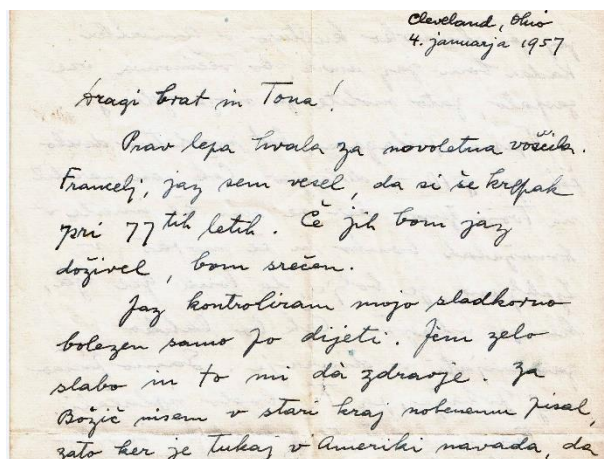 Cleveland, Ohio
4. januarja 1957
Dragi brat in Tona!
Prav lepa hvala za novoletna voščila.
Francelj, jaz sem vesel, da si še krepak
pri 77tih letih. Če jih bom jaz
doživel, bom srečen.
Jaz kontroliram mojo sladkorno
bolezen samo po dijeti. Jem zelo
slabo in to mi da zdravje. Za
Božič nisem v stari kraj nobenemu pisal,
zato ker je tukaj v Ameriki navada, da